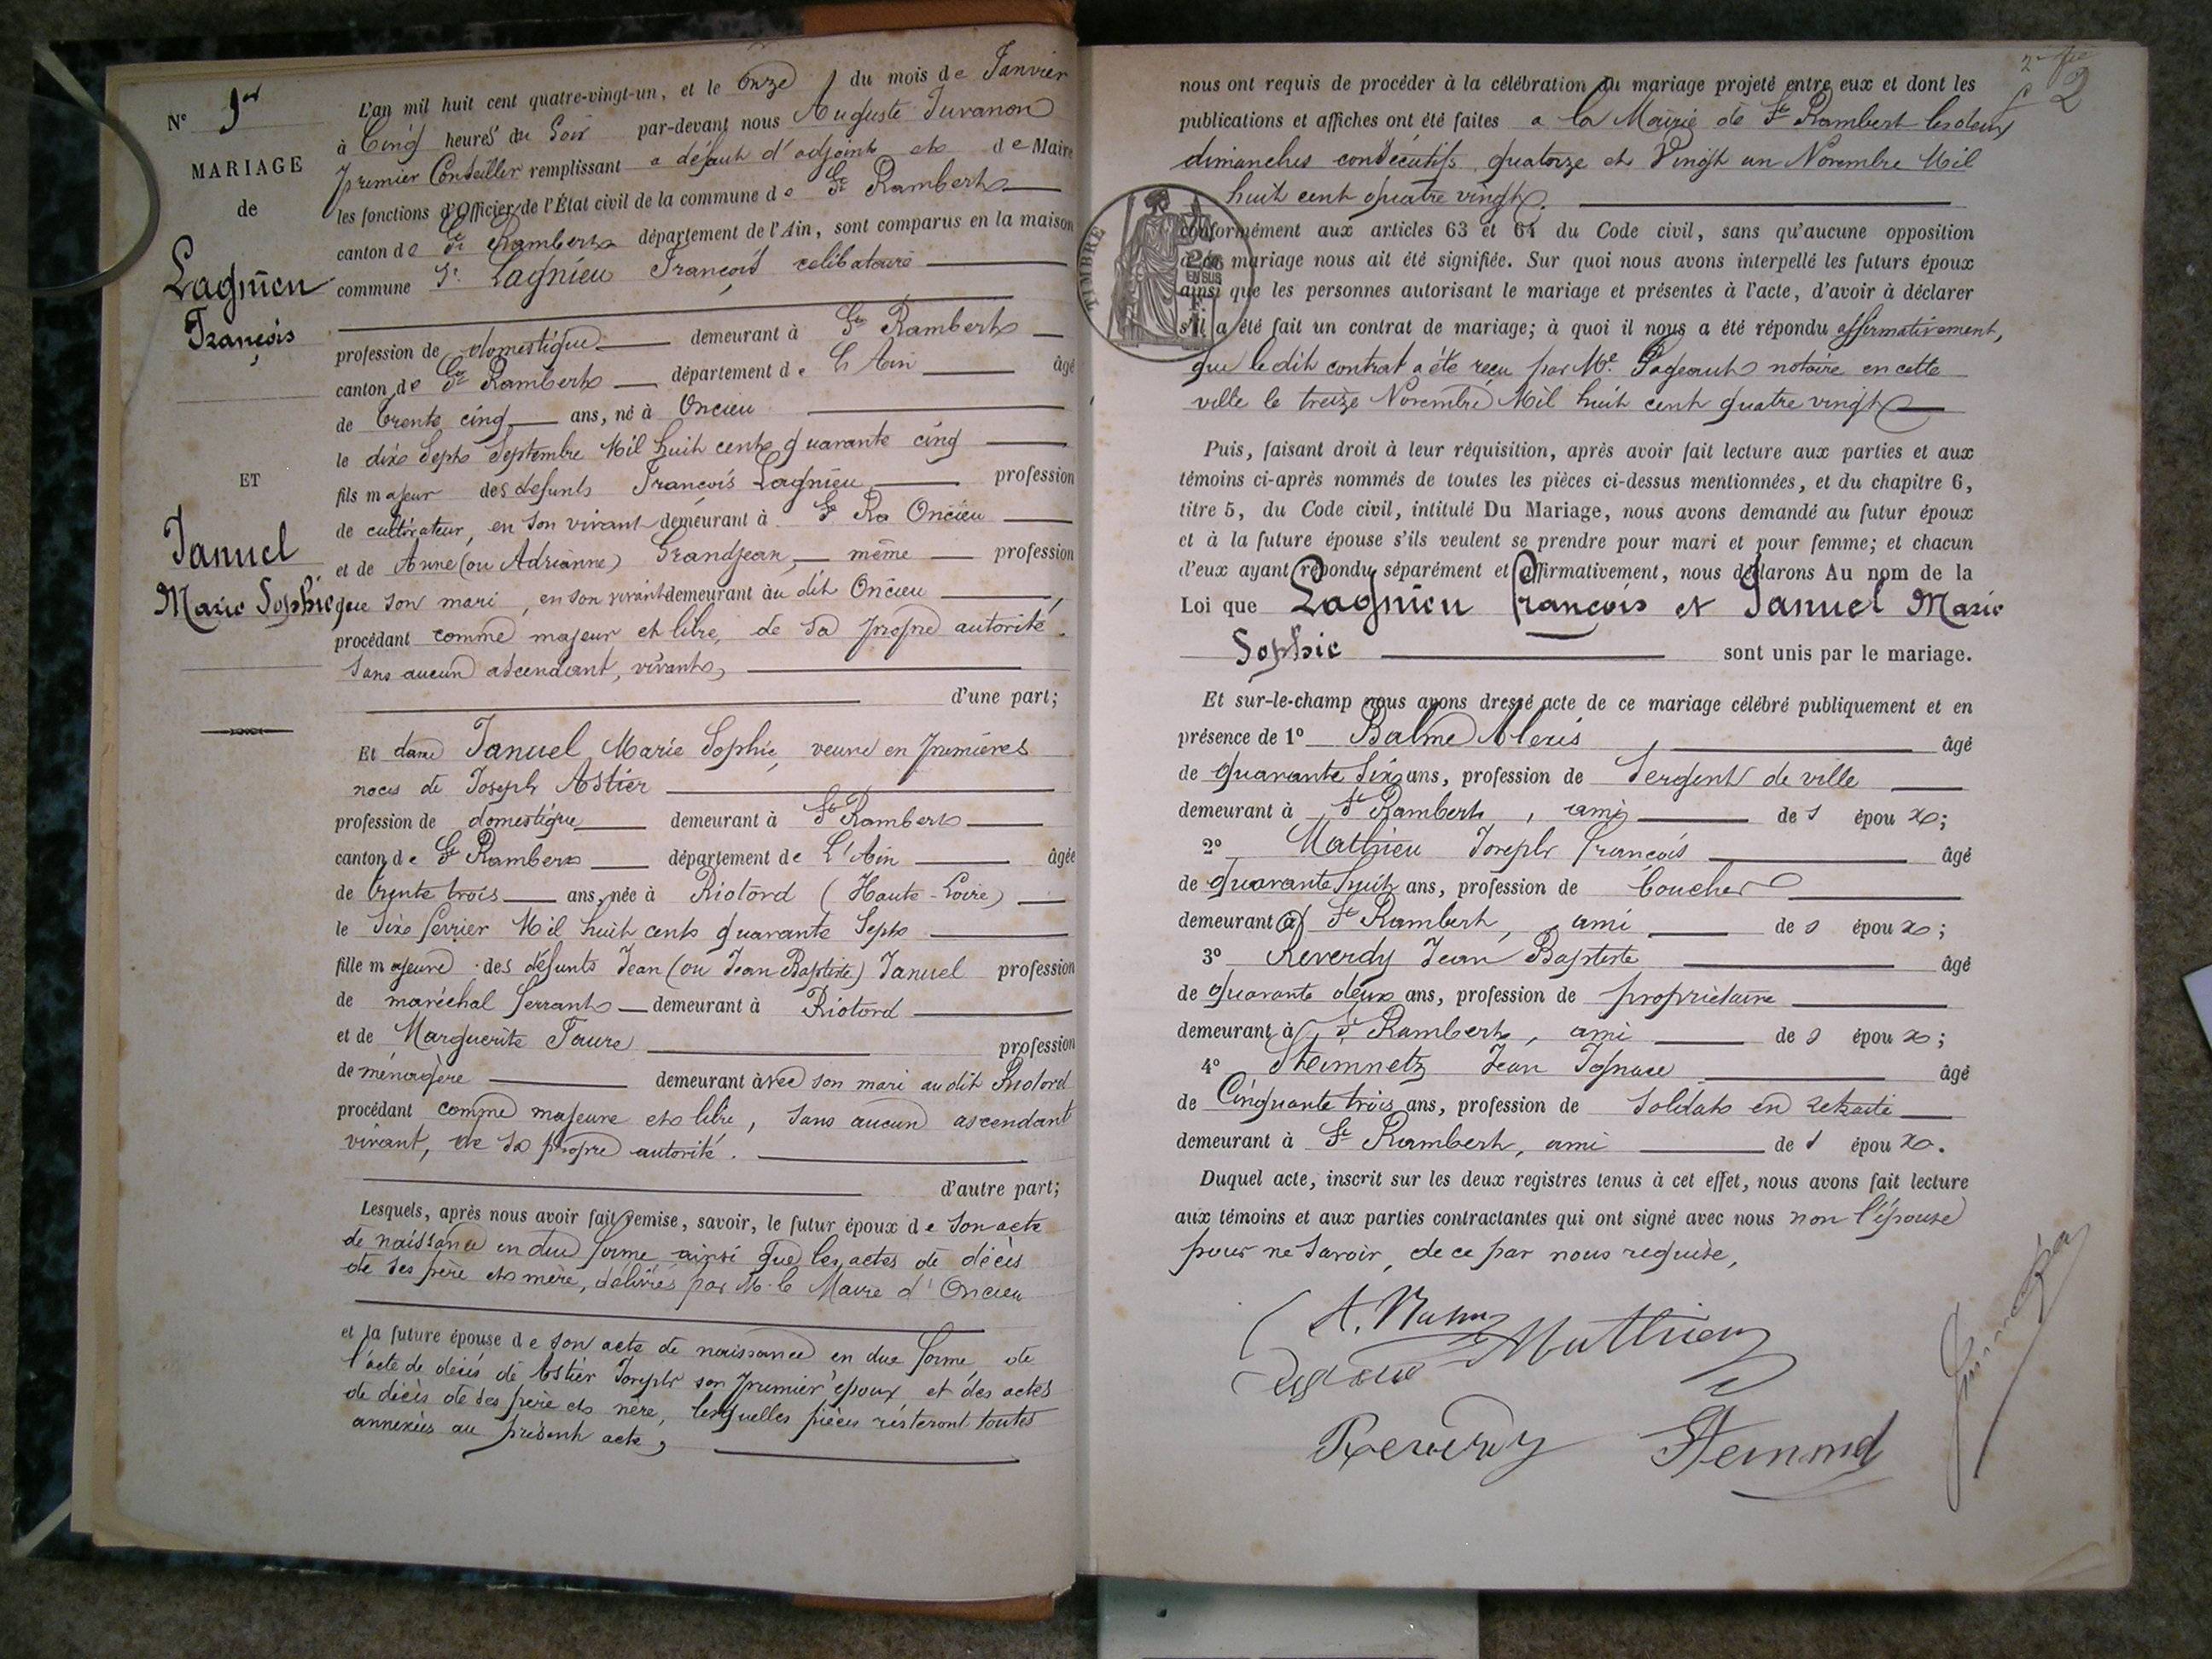 N° 1er
MARIAGE
de
Lagnieu
François
ET
Januel
Marie Sophie
L'an mil huit cent quatre-vingt-un, et le Onze du mois de Janvier
à Cinq heures du Soir par-devant nous Auguste Juvanon
premier Conseiller remplissant a défaut d'adjoint et de Maire
les fonctions d'Officier de l'État civil de la commune de St Rambert
canton de St Rambert département de l'Ain, sont comparus en la maison
commune Sr Lagnieu François célibataire
profession de domestique demeurant à St Rambert
canton de St Rambert département de L'Ain âgé
de trente cinq ans, né à Oncieu
le dix Sept Septembre Mil huit cent quarante cinq
fils majeur des défunts François Lagnieu profession
de cultivateur, en son vivant demeurant à Oncieu
et de Anne (ou Adrianne) Grandjean, même profession
que son mari, en son vivant demeurant au dit Oncieu
procédant comme majeur et libre, de sa propre autorité.
sans aucun ascendant, vivant,
d'une part;
Et dame Januel Marie Sophie, veuve en premières
noces de Joseph Astier
profession de domestique demeurant à St Rambert
canton de St Rambert département de L'Ain âgée
de trente trois ans, née à Riotord (Haute-Loire)
le Six février Mil huit cent quarante Sept
fille majeure des défunts Jean (ou Jean Baptiste) Januel profession
de maréchal ferrant demeurant à Riotord
et de Marguerite Faure profession
de ménagère demeurant avec son mari au dit Riotord
procédant comme majeure et libre, sans aucun ascendant
vivant, de sa propre autorité.
d'autre part;
Lesquels, après nous avoir fait remise, savoir, le futur époux de son acte
de naissance en due forme ainsi que les actes de décès
de ses père et mère, délivrés par Mr le Maire d'Oncieu
et la future épouse de son acte de naissance en due forme, de
l'acte de décès de Astier Joseph son premier époux et des actes
de décès de ses père et mère, lesquelles pièces resteront toutes
annexées au présent acte,
2
nous ont requis de procéder à la célébration du mariage projeté entre eux et dont les
publications et affiches ont été faites a la Mairie de St Rambert les deux
dimanches consécutifs quatorze et Vingt un Novembre Mil
huit cent quatre vingt.
TIMBRE
conformément aux articles 63 et 64 du Code civil, sans qu'aucune opposition
à ce mariage nous ait été signifiée. Sur quoi nous avons interpellé les futurs époux
ainsi que les personnes autorisant le mariage et présentes à l'acte, d'avoir à déclarer
s'il a été fait un contrat de mariage; à quoi il nous a été répondu affirmativement,
que le dit contrat a été reçu par Me Pageaut notaire en cette
ville le treize Novembre Mil huit cent quatre vingt
Puis, faisant droit à leur réquisition, après avoir fait lecture aux parties et aux
témoins ci-après nommés de toutes les pièces ci-dessus mentionnées, et du chapitre 6,
titre 5, du Code civil, intitulé Du Mariage, nous avons demandé au futur époux
et à la future épouse s'ils veulent se prendre pour mari et pour femme; et chacun
d'eux ayant répondu séparément et affirmativement, nous déclarons Au nom de la
Loi que Lagnieu François et Januel Marie
Sophie sont unis par le mariage.
Et sur-le-champ nous avons dressé acte de ce mariage célébré publiquement et en
présence de 1° Balme Alexis, âgé
de quarante Six ans, profession de Sergent de ville
demeurant à St Rambert, ami des époux;
2° Mathieu Joseph François âgé
de quarante huit ans, profession de boucher
demeurant à St Rambert, ami des époux;
3° Reverdy Jean Baptiste âgé
de quarante deux ans, profession de propriétaire
demeurant à St Rambert, ami des époux;
4° Steimnetz Jean Ignace âgé
de Cinquante trois ans, profession de Soldat en retraite
demeurant à St Rambert, ami des époux.
Duquel acte, inscrit sur les deux registres tenus à cet effet, nous avons fait lecture
aux témoins et aux parties contractantes qui ont signé avec nous non l'épouse
pour ne savoir, de ce par nous requise,
Mathieu
Reverdy